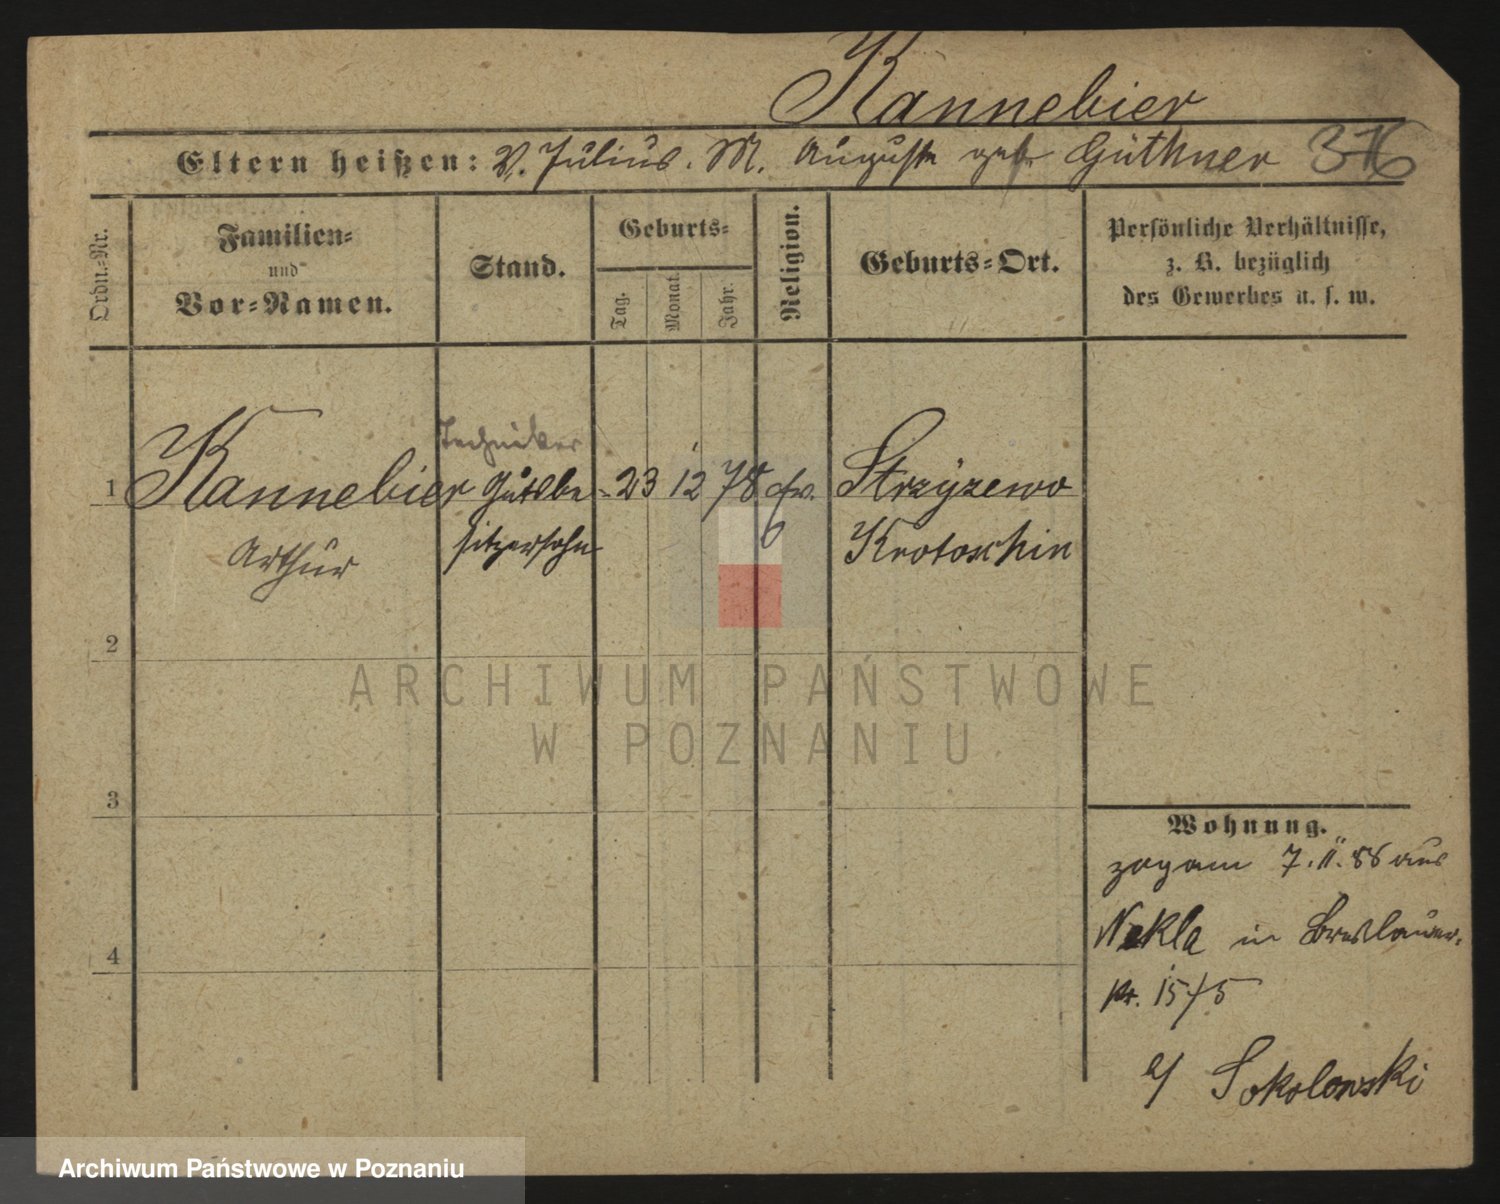 Kannebier
Eltern heißen: V. Julius. M. Auguste geb Güthner 376
Ordn.-Nr.
Familien-
und
Vor-Namen.
Stand.
Geburts-
Tag.
Monat.
Jahr.
Religion.
Geburts-Ort.
Persönliche Verhältnisse,
z. B. bezüglich
des Gewerbes u. s. w.
Techniker
1 Kannebier Gutsbe- 23 12 78 ev. Strzyzewo
Arthur sitzersohn Krotoschin
2
3
4
Wohnung.
zog am 7. II. 88 aus
Nekla in Breslauer-
str. 15/5
b/ Sokolowski
ARCHIWUM PAŃSTWOWE
W POZNANIU
Archiwum Państwowe w Poznaniu